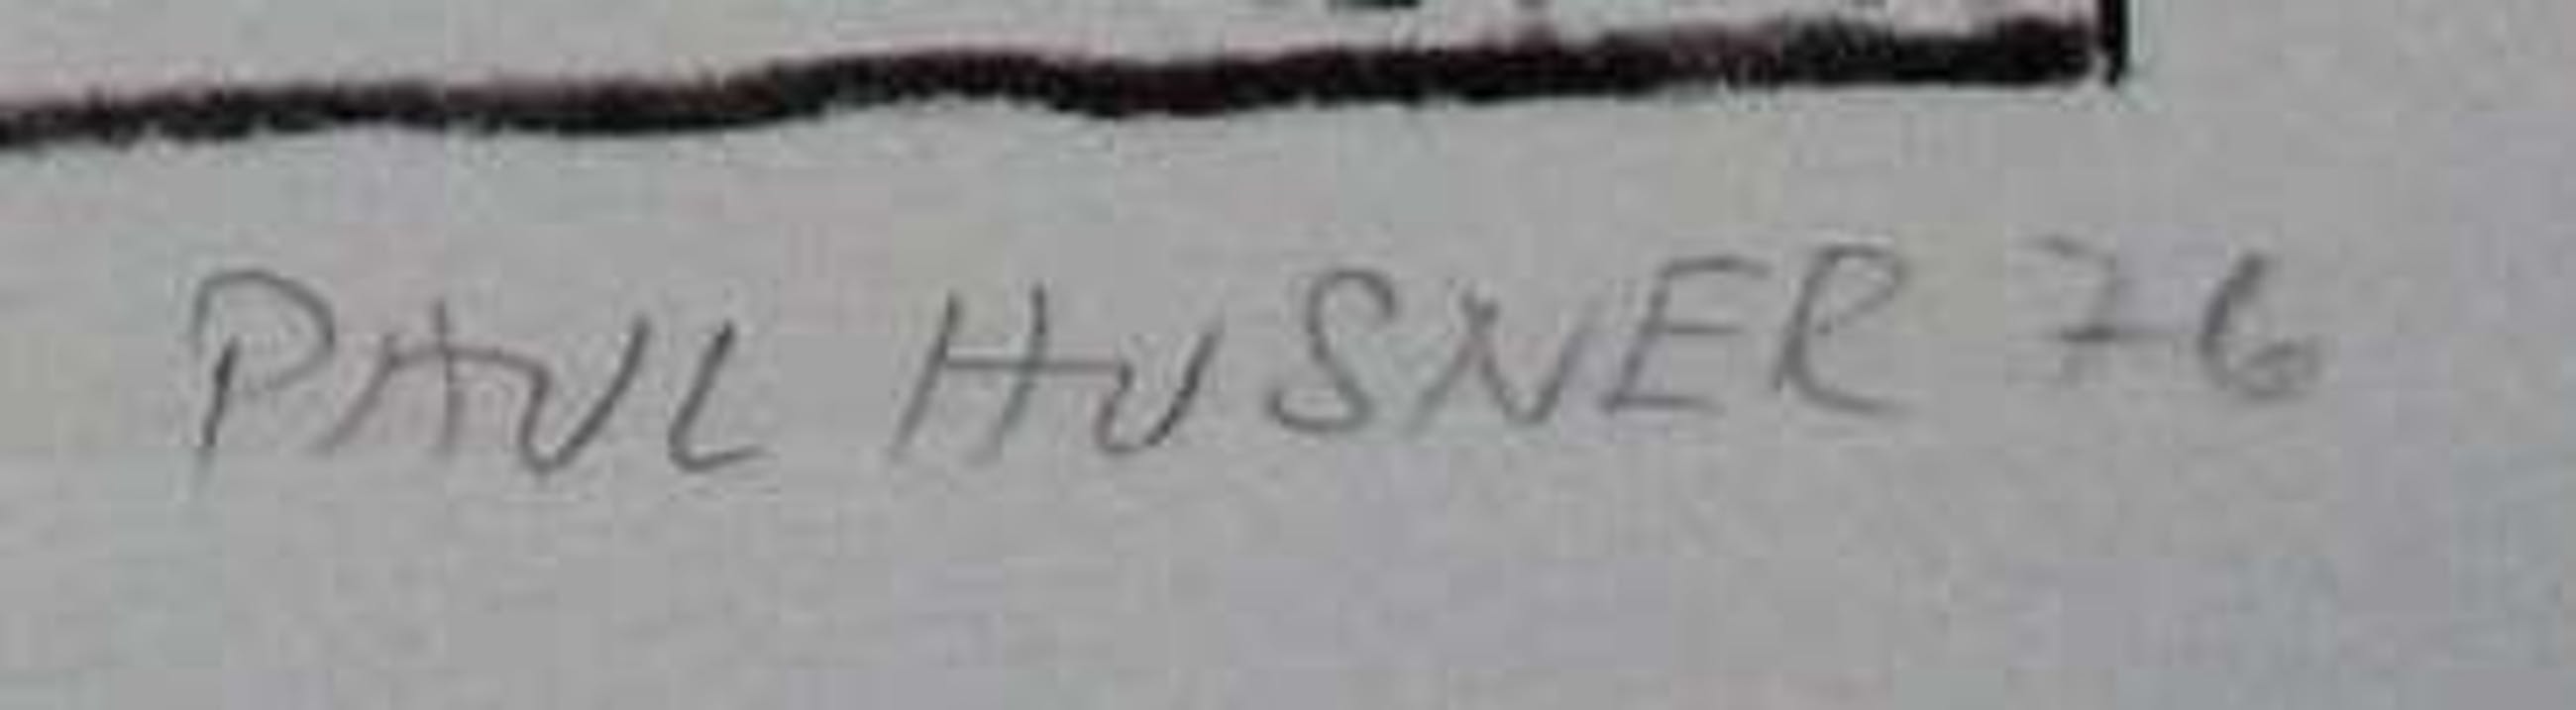 PAUL HUSNER 76